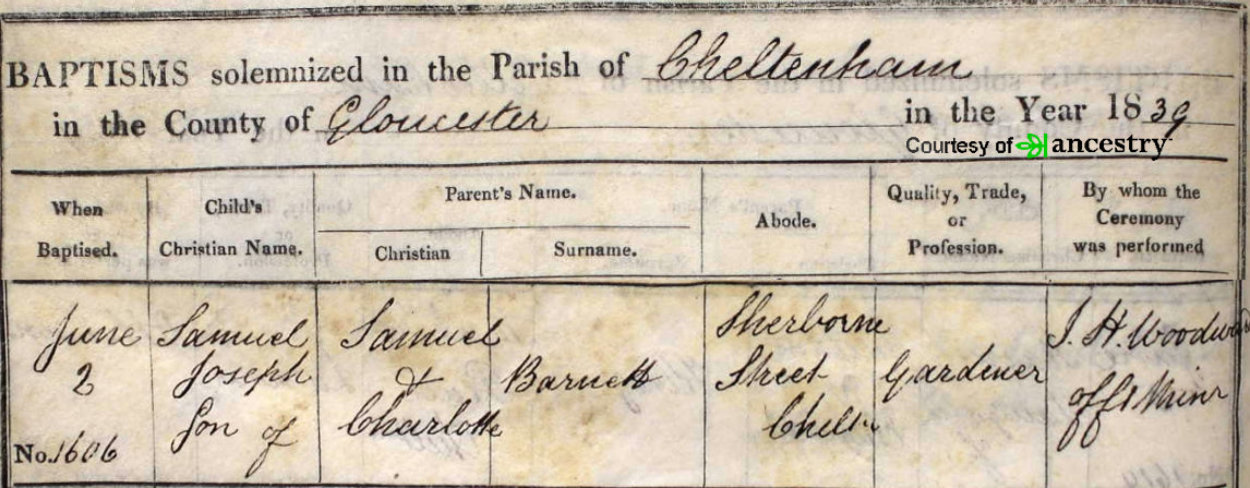 BAPTISMS solemnized in the Parish of Cheltenham
in the County of Gloucester in the Year 1839
Courtesy of ancestry
When Baptised.
Child's Christian Name.
Parent's Name.
Christian
Surname.
Abode.
Quality, Trade, or Profession.
By whom the Ceremony was performed
June
2
No. 1606
Samuel
Joseph
Son of
Samuel
&
Charlotte
Barnett
Sherborne
Street
Chelt.
Gardener
J. H. Woodward
off Minr